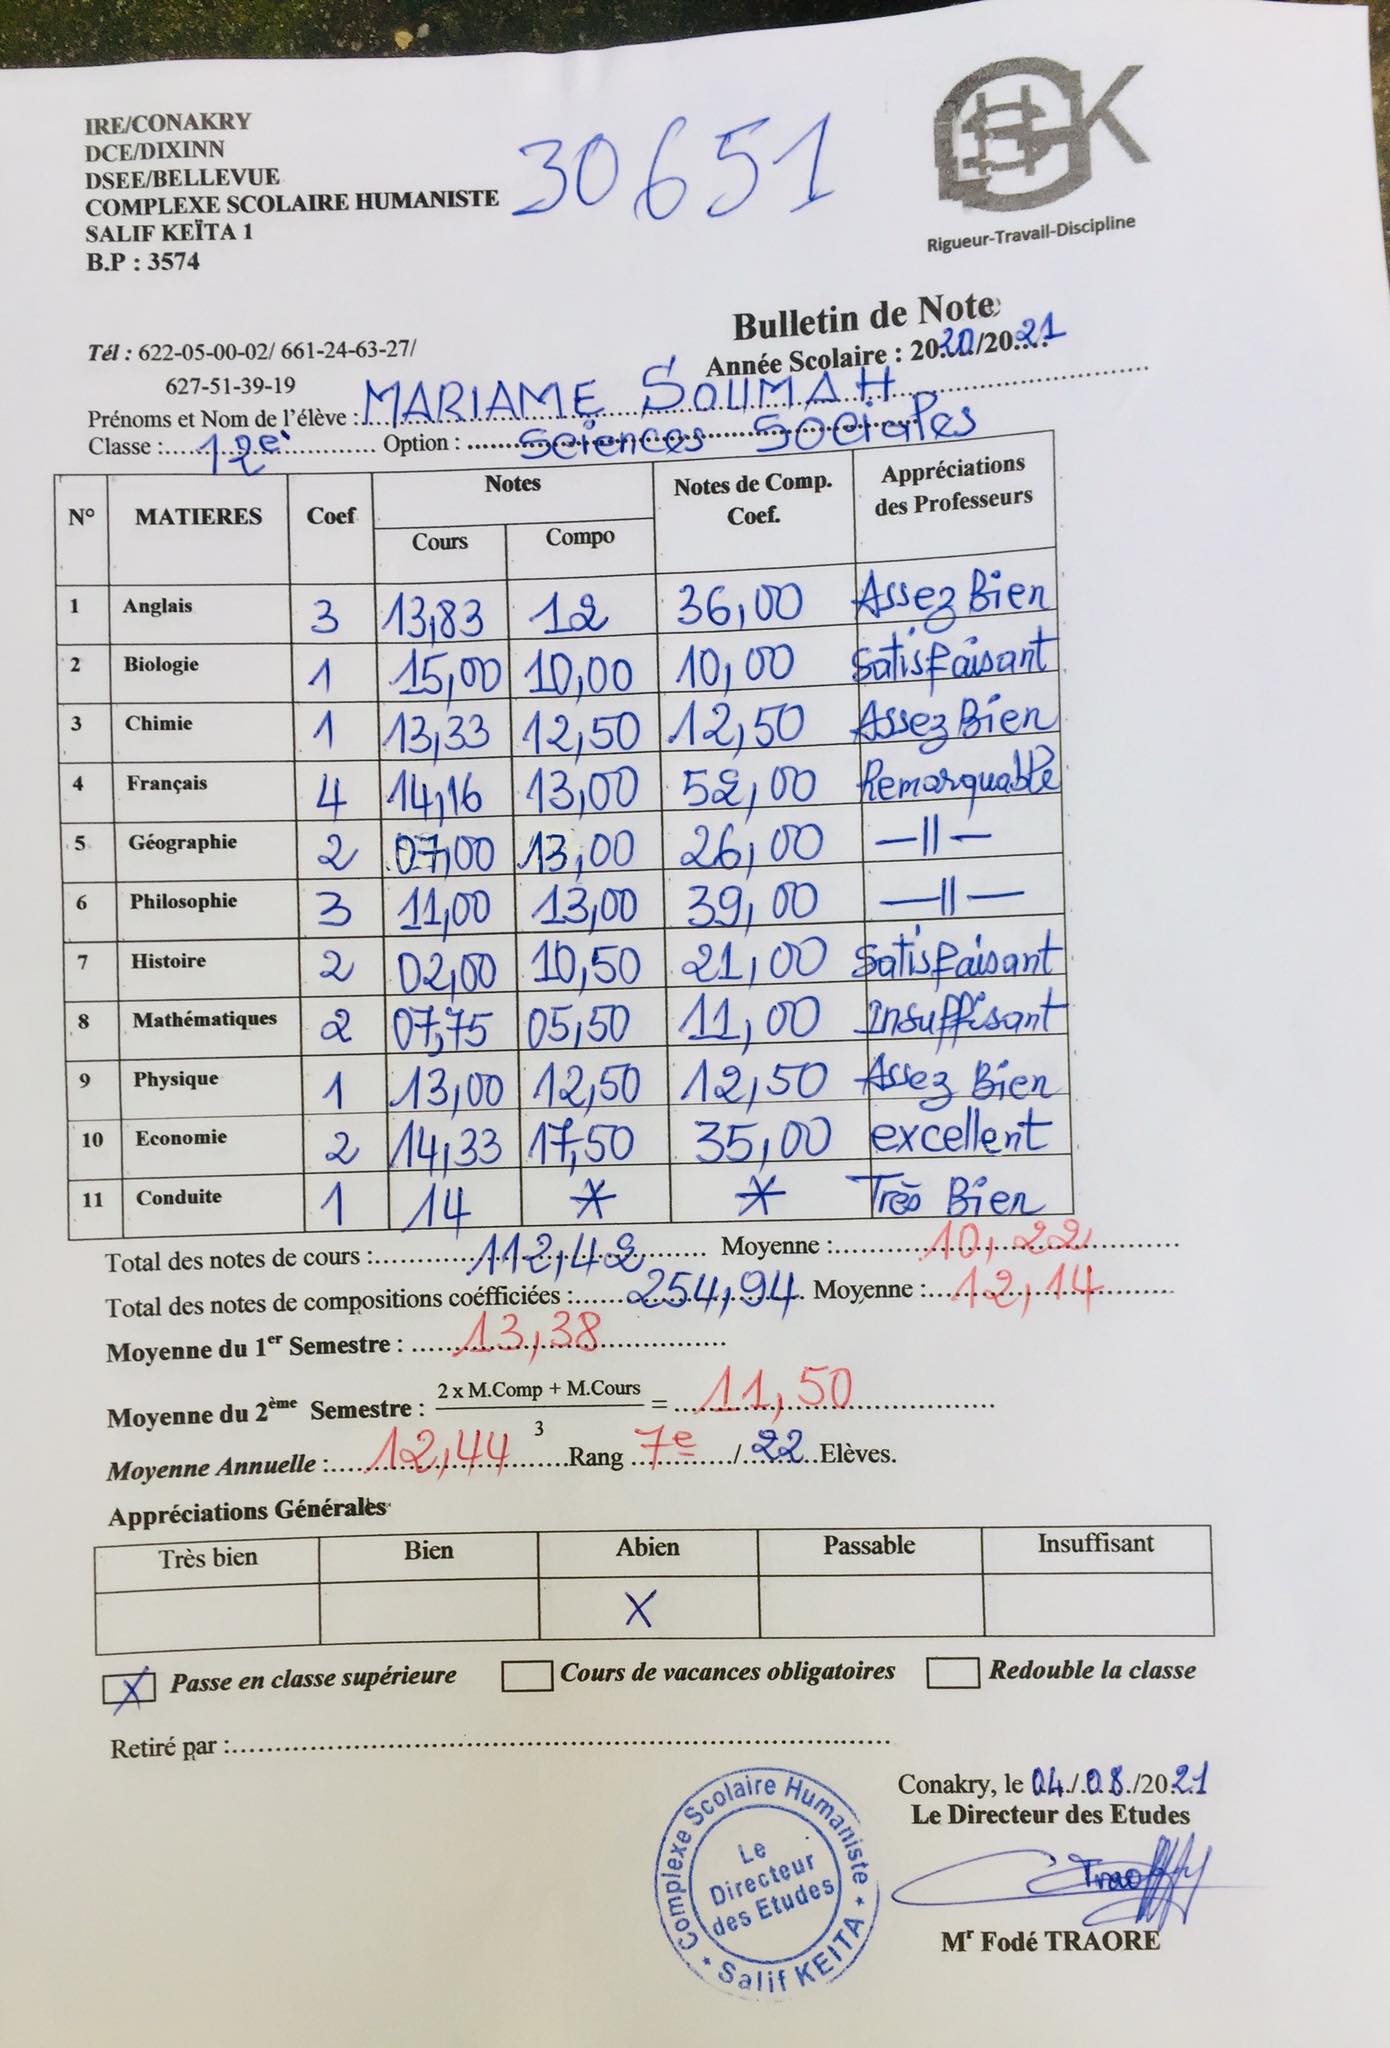 IRE/CONAKRY
DCE/DIXINN
DSEE/BELLEVUE
COMPLEXE SCOLAIRE HUMANISTE
SALIF KEÏTA 1
B.P : 3574
30651
K
Rigueur-Travail-Discipline
Bulletin de Note
Année Scolaire : 2020/2021
Tél : 622-05-00-02/ 661-24-63-27/
627-51-39-19
Prénoms et Nom de l'élève : MARIAME SOUMAH
Classe : 12e Option : Sciences Sociales
N° MATIERES Coef Notes Notes de Comp. Coef. Appréciations des Professeurs
Cours Compo
1 Anglais 3 13,83 12 36,00 Assez Bien
2 Biologie 1 15,00 10,00 10,00 Satisfaisant
3 Chimie 1 13,33 12,50 12,50 Assez Bien
4 Français 4 14,16 13,00 52,00 Remarquable
5 Géographie 2 07,00 13,00 26,00 —||—
6 Philosophie 3 11,00 13,00 39,00 —||—
7 Histoire 2 02,00 10,50 21,00 Satisfaisant
8 Mathématiques 2 07,75 05,50 11,00 Insuffisant
9 Physique 1 13,00 12,50 12,50 Assez Bien
10 Economie 2 14,33 17,50 35,00 excellent
11 Conduite 1 14 * * Très Bien
Total des notes de cours : 112,42 Moyenne : 10,22
Total des notes de compositions coéfficiées : 254,94 Moyenne : 12,14
Moyenne du 1er Semestre : 13,38
Moyenne du 2ème Semestre : 2 x M.Comp + M.Cours / 3 = 11,50
Moyenne Annuelle : 12,44 Rang 7e / 22 Elèves.
Appréciations Générales
Très bien Bien Abien Passable Insuffisant
X
X Passe en classe supérieure Cours de vacances obligatoires Redouble la classe
Retiré par :
Conakry, le 04/08/2021
Le Directeur des Etudes
Complexe Scolaire Humaniste
Le
Directeur
des Etudes
* Salif KEITA *
Mr Fodé TRAORE